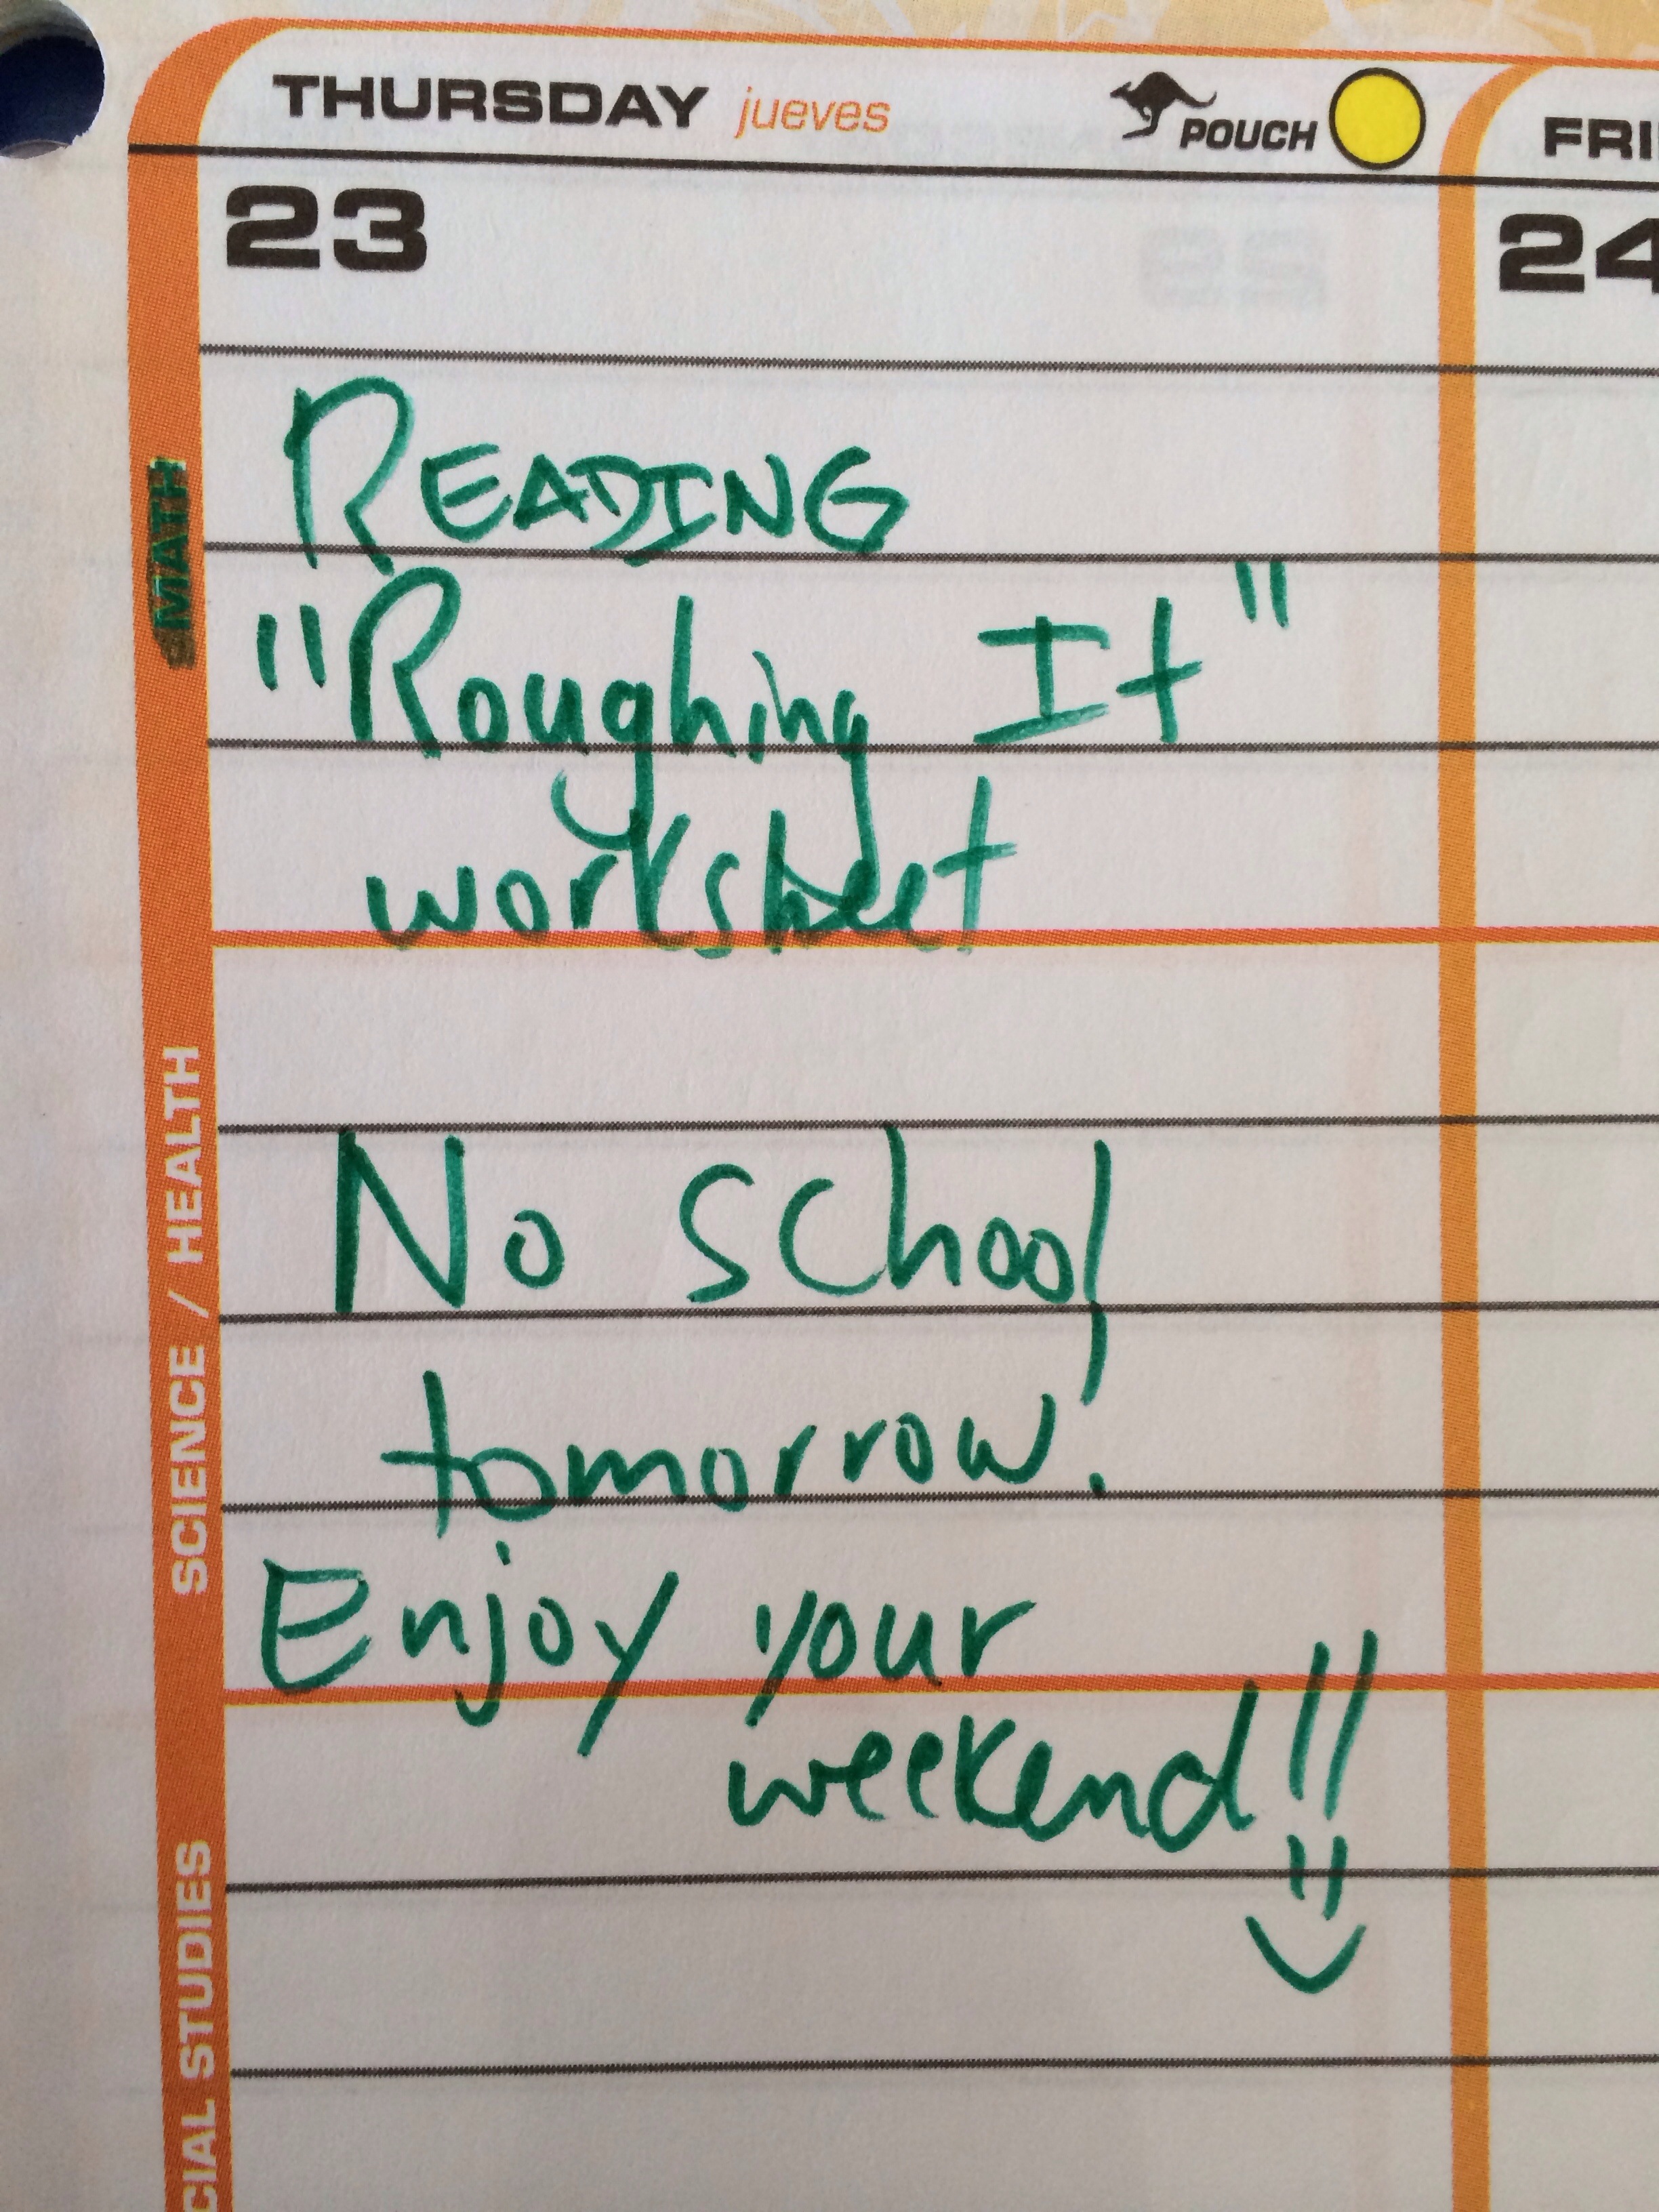 THURSDAY jueves POUCH
FRI
23
24
MATH
READING
"Roughing It"
worksheet
SCIENCE / HEALTH
No school
tomorrow!
Enjoy your
weekend!!
CIAL STUDIES